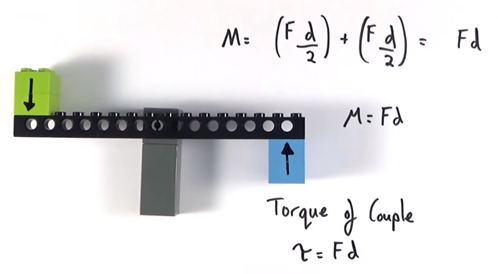 M = (F d/2) + (F d/2) = Fd
M = Fd
Torque of Couple
τ = Fd